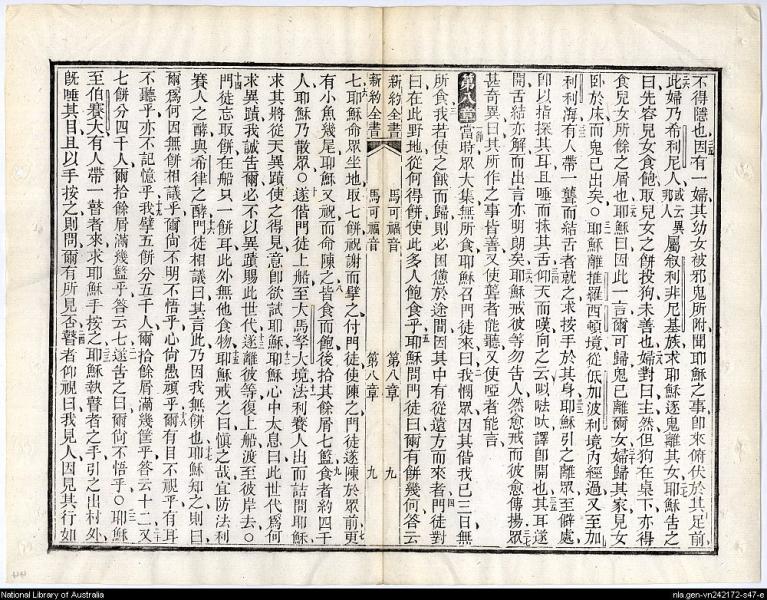 不得隱也因有一婦其幼女被邪鬼所附聞耶穌之事卽來俯伏於其足前
此婦乃希利尼人或云異邦人屬敘利非尼基族求耶穌逐鬼離其女耶穌告之
曰先容兒女食飽取兒女之餅投狗未善也婦對曰主然但狗在桌下亦得
食兒女所餘之屑也耶穌曰因此一言爾可歸鬼已離爾女婦歸其家見女
卧於床而鬼已出矣○耶穌離推羅西頓境從低加波利境內經過又至加
利利海有人帶一聾而結舌者就之求按手於其身耶穌引之離眾至僻處
卽以指探其耳且唾而抹其舌仰天而嘆向之云㕽呋吠譯卽開也其耳遂
開舌結亦解而出言亦明朗矣耶穌戒彼等勿告人然愈戒而彼愈傳揚眾
甚奇異曰其所作之事皆善又使聾者能聽又使啞者能言
第八章 當時眾大集無所食耶穌召門徒來曰我憫眾因其偕我已三日無
所食我若使之餓而歸則必困憊於途間因其中有從遠方而來者門徒對
曰在此野地從何得餅使此多人飽食乎耶穌問門徒曰爾有餅幾何答云
新約全書 馬可福音 第八章 九
新約全書 馬可福音 第八章 九
七耶穌命眾坐地取七餅祝謝而擘之付門徒使陳之門徒遂陳於眾前更
有小魚幾尾耶穌又祝而命陳之皆食而飽後拾其餘屑七籃食者約四千
人耶穌乃散眾○遂偕門徒上船至大馬拏大境法利賽人出而詰問耶穌
求其將從天異蹟使之得見意卽欲試耶穌耶穌心中太息曰此世代爲何
求異蹟我誠告爾必不以異蹟賜此世代遂離彼等復上船渡至彼岸去○
門徒忘取餅在船只一餅耳此外無他食物耶穌戒之曰愼之哉宜防法利
賽人之酵與希律之酵門徒相議曰其言此乃因我無餅也耶穌知之則曰
爾爲何因無餅相議乎爾尙不明不悟乎心尙愚頑乎爾有目不視乎有耳
不聽乎亦不記憶乎我擘五餅分五千人爾拾餘屑滿幾筐乎答云十二又
七餅分四千人爾拾餘屑滿幾籃乎答云七遂告之曰爾尙不悟乎○耶穌
至伯賽大有人帶一瞽者來求耶穌手按之耶穌執瞽者之手引之出村外
旣唾其目且以手按之則問爾有所見否瞽者仰視曰我見人因見其行如
National Library of Australia
nla.gen-vn242172-s47-e